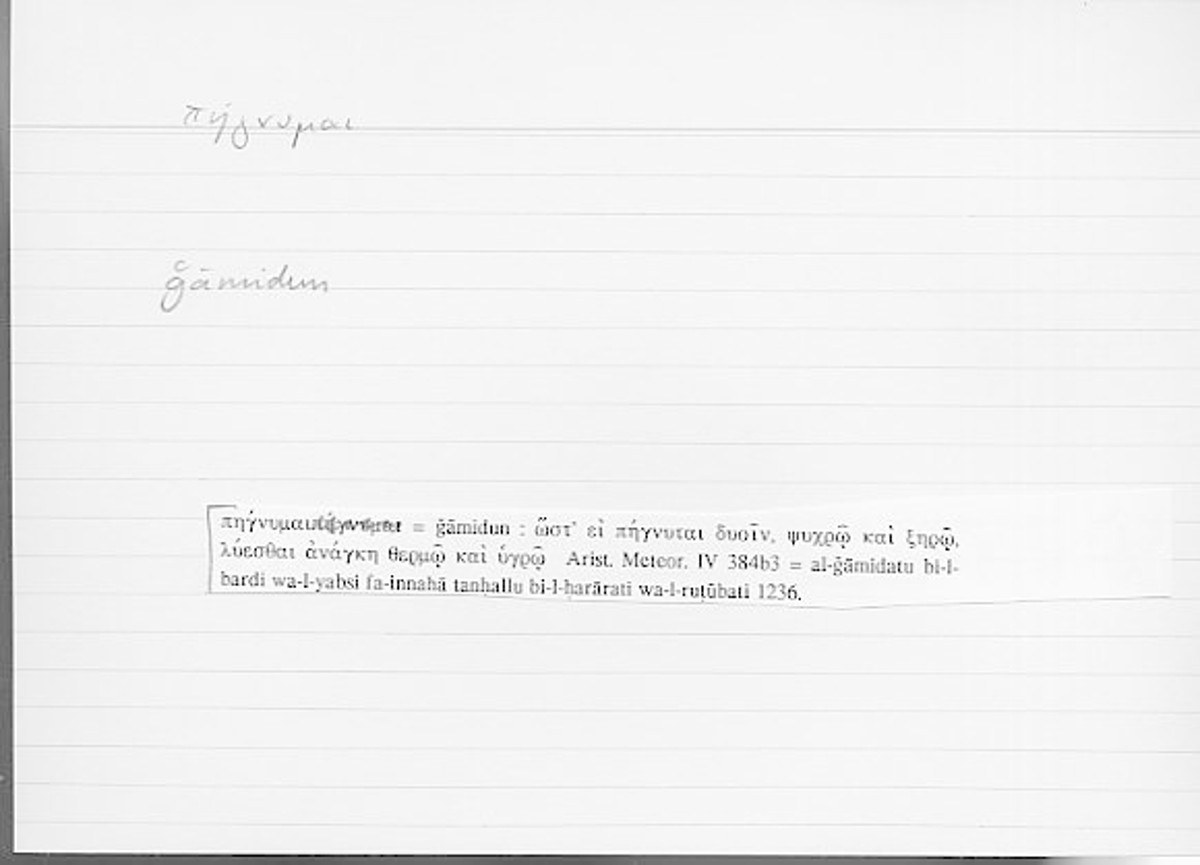 πήγνυμαι
ǧāmidun
πηγνυμαι = ǧāmidun : ὥστ’ εἰ πήγνυται δυοῖν, ψυχρῷ καὶ ξηρῷ,
λύεσθαι ἀνάγκη θερμῷ καὶ ὑγρῷ Arist. Meteor. IV 384b3 = al-ǧāmidatu bi-l-
bardi wa-l-yabsi fa-innahā tanḥallu bi-l-ḥarārati wa-l-ruṭūbati 1236.